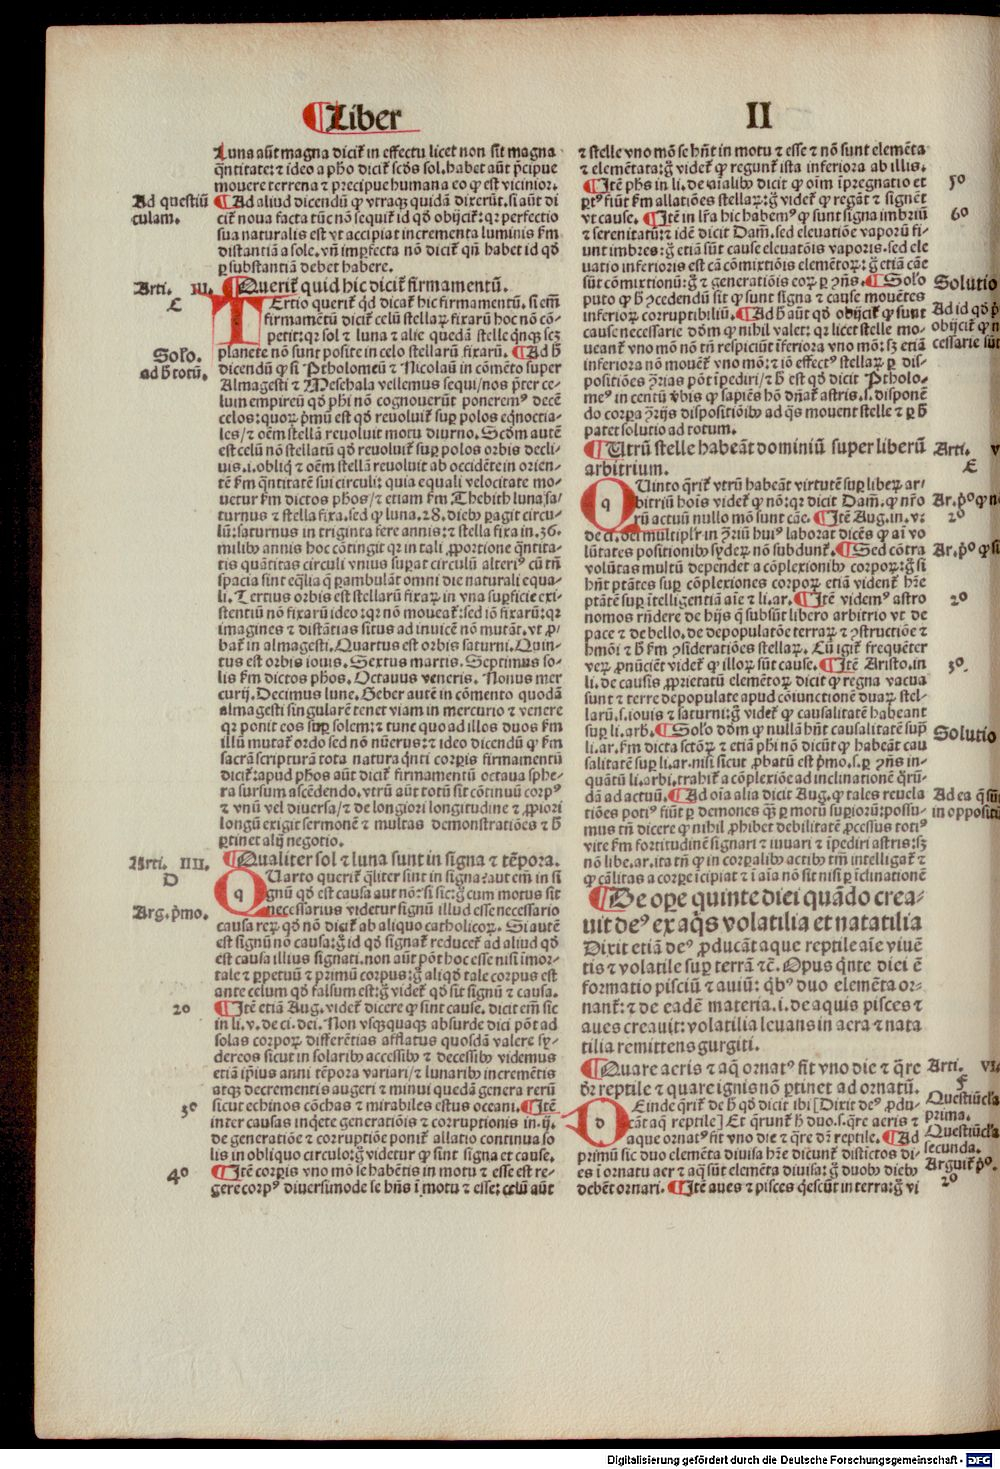 ¶Liber
II
Luna aūt magna diciť in effectu licet non sit magna
q̄ntitate: ⁊ ideo a pho diciť scd̄s sol. habet aūt p̄cipue
mouere terrena ⁊ precipue humana eo ꝙ est vicinior.
Ad questiū
culam.
¶Ad aliud dicendū ꝙ vtraqꝫ quidā dixerūt. si aūt di
ciť noua facta tūc nō sequiť id qd̄ obijciť: qꝛ perfectio
sua naturalis est vt accipiat incrementa luminis ẜm
distantiā a sole. vn̄ imꝑfecta nō diciť qn̄ habet id qd̄
ꝑ substantiā debet habere.
Arti. III.
E
¶Queriť quid hic diciť firmamentū.
TErtio queriť qd̄ dicať hic firmamentū. si em̄
firmamētū diciť celū stellaꝝ fixarū hoc nō cō-
petit: qꝛ sol ⁊ luna ⁊ alie quedā stelle qͥnqꝫ scꝫ
Solō.
ad h̄ totū.
planete nō sunt posite in celo stellarū fixarū. ¶Ad h̄
dicendū ꝙ si Ptholomeū ⁊ Nicolaū in cōmēto super
Almagesti ⁊ Mesehala vellemus sequi/ nos p̄ter ce-
lum empireū qd̄ phi nō cognouerūt ponerem⁹ decē
celos: quoꝝ p̄mū est qd̄ reuoluiť suꝑ polos eqͥnoctia-
les/ ⁊ oēm stellā reuoluit motu diurno. Scd̄m autē
est celū nō stellatū qd̄ reuoluiť suꝑ polos orbis decli-
uis. i. obliqͥ ⁊ oēm stellā reuoluit ab occidēte in orien-
tē ẜm q̄ntitatē sui circuli: quia equali velocitate mo-
uetur ẜm dictos phos/ ⁊ etiam ẜm Thebith luna/ sa-
turnus ⁊ stella fixa. sed ꝙ luna. 28. diebꝰ ꝑagit circu-
lū: saturnus in triginta fere annis: ⁊ stella fixa in. 36.
milibꝰ annis hoc cōtingit qꝛ in tali ꝓportione q̄ntita-
tis quātitas circuli vnius suꝑat circulū alteri⁹ cū tn̄
spacia sint eq̄lia q̄ ꝑambulāt omni die naturali equa-
li. Tertius orbis est stellarū fixaꝝ in vna suꝑficie exi-
stentiū nō fixarū ideo: qꝛ nō moueať: sed iō fixarū: qꝛ
imagines ⁊ distātias situs ad inuicē nō mutāt. vt ꝓ-
bať in almagesti. Quartus est orbis saturni. Quin-
tus est orbis iouis. Sextus martis. Septimus so-
lis ẜm dictos phos. Octauus veneris. Nonus mer
curij. Decimus lune. Geber autē in cōmento quodā
almagesti singularē tenet viam in mercurio ⁊ venere
qꝛ ponit eos suꝑ solem: ⁊ tunc quo ad illos duos ẜm
illū mutať ordo sed nō nūerus: ⁊ ideo dicendū ꝙ ẜm
sacrā scripturā tota natura qͥnti corꝑis firmamentū
diciť: apud phos aūt diciť firmamentū octaua sphe-
ra sursum ascēdendo. vtrū aūt totū sit cōtinuū corp⁹
⁊ vnū vel diuersa/ ⁊ de longiori longitudine ⁊ ꝓpiori
longū exigit sermonē ⁊ multas demonstratiōes ⁊ h̄
ꝑtinet alij negotio.
Arti. IIII.
D
¶Qualiter sol ⁊ luna sunt in signa ⁊ tēpora.
QUarto queriť qͣliter sint in signa: aut em̄ in si
gnū qd̄ est causa aut nō: si sic: g̊ cum motus sit
Arg. p̄mo.
necessarius videtur signū illud esse necessario
causa reꝝ qd̄ nō diciť ab aliquo catholicoꝝ. Si autē
est signū nō causa: g̊ id qd̄ signať reduceť ad aliud qd̄
est causa illius signati. non aūt pōt hoc esse nisi īmor-
tale ⁊ ꝑpetuū ⁊ primū corpus: g̊ aliqd̄ tale corpus est
ante celum qd̄ falsum est: g̊ videť qd̄ sit signū ⁊ causa.
2⁰
¶Itē etiā Aug. videť dicere ꝙ sint cause. dicit em̄ sic
in li. v. de ci. dei. Non vsqꝫquaqꝫ absurde dici pōt ad
solas corpoꝝ differētias afflatus quosdā valere sy-
dereos sicut in solaribꝰ accessibꝰ ⁊ decessibꝰ videmus
etiā ip̄ius anni tēpora variari/ ⁊ lunaribꝰ incremētis
atqꝫ decrementis augeri ⁊ minui quedā genera rerū
3⁰
sicut echinos cōchas ⁊ mirabiles estus oceani. ¶Itē
inter causas inq̄ete generatiōis ⁊ corruptionis in. ij.
de generatiōe ⁊ corruptiōe poniť allatio continua so
lis in obliquo circulo: g̊ videtur ꝙ sint signa et cause.
4⁰
¶Itē corꝑis vno mō se habētis in motu ⁊ esse est re-
gere corp⁹ diuersimode se hn̄s ī motu ⁊ esse: celū aūt
⁊ stelle vno mō se hn̄t in motu ⁊ esse ⁊ nō sunt elemēta
⁊ elemētata: g̊ videť ꝙ regunť ista inferiora ab illis.
5⁰
¶Itē phs in li. de aīalibꝰ dicit ꝙ oīm īpregnatio et
ꝑt⁹ fiūt ẜm allatiōes stellaꝝ: g̊ videť ꝙ regāt ⁊ signēt
6⁰
vt cause. ¶Itē in lr̄a hic habem⁹ ꝙ sunt signa imbriū
⁊ serenitatū: ⁊ idē dicit Dam̄. sed eleuatiōe vaporū fi-
unt imbres: g̊ etiā sūt cause eleuatōis vaporis. sed ele
uatio inferioris est cā cōmixtiōis elemētoꝝ: g̊ etiā cāe
Solutio
sūt cōmixtionū: g̊ ⁊ generatiōis eoꝝ ꝑ ꝯn̄s. ¶Solō
puto ꝙ h̄ ꝯcedendū sit ꝙ sunt signa ⁊ cause mouētes
Ad id qd̄ p̄
obijciť ꝙ n
cessarie sūt
inferioꝝ corruptibiliū. ¶Ad h̄ aūt qd̄ obijciť ꝙ sunt
cause necessarie dōm ꝙ nihil valet: qꝛ licet stelle mo-
ueanť vno mō nō tn̄ respiciūt īferiora vno mō: sꝫ etiā
inferiora nō mouēť vno mō: ⁊ iō effect⁹ stellaꝝ ꝑ dis-
positiōes ꝯ̄rias pōt īpediri/ ⁊ h̄ est qd̄ dicit Ptholo-
me⁹ in centū v̄bis ꝙ sapiēs hō dn̄ať astris. s. disponē
do corꝑa ꝯ̄rijs dispositiōibꝰ ad q̄s mouent stelle ⁊ ꝑ h̄
patet solutio ad totum.
Arti. V
E
¶Utrū stelle habeāt dominiū super liberū
arbitrium.
QUinto q̄riť vtrū habeāt virtutē suꝑ libeꝝ ar-
Ar. p̄⁰ ꝙ nō
bitriū hoīs videť ꝙ nō: qꝛ dicit Dam̄. ꝙ nr̄o
2⁰
rū actuū nullo mō sunt cāe. ¶Itē Aug. in. v.
de ci. dei multipl'r in ꝯ̄riū hui⁹ laborat dicēs ꝙ aī vo
Ar. p̄⁰ ꝙ si
lūtates positionibꝰ syderꝝ nō subdunť. ¶Sed cōtra
volūtas multū dependet a cōplexionibꝰ corpoꝝ: g̊ si
hn̄t ptātes suꝑ cōplexiones corpoꝝ etiā videnť hr̄e
2⁰
ptātē suꝑ ītelligentiā aīe ⁊ li. ar. ¶Itē videm⁹ astro
nomos rn̄dere de hijs q̄ subsūt libero arbitrio vt de
pace ⁊ de bello. de depopulatōe terraꝝ ⁊ ꝯstructiōe ⁊
hmōi ⁊ h̄ ẜm ꝯsideratiōes stellaꝝ. Cū igiť frequēter
3⁰.
veꝝ ꝓnūciēt videť ꝙ illoꝝ sūt cause. ¶Itē Aristo. in
li. de causis ꝓprietatū elemētoꝝ dicit ꝙ regna vacua
sunt ⁊ terre depopulate apud cōiunctionē duaꝝ stel-
larū. s. iouis ⁊ saturni: g̊ videť ꝙ causalitatē habeant
Solutio
suꝑ li. arb. ¶Solō dōm ꝙ nullā hn̄t causalitatē suꝑ
li. ar. ẜm dicta sctōꝝ ⁊ etiā phi nō dicūt ꝙ habeāt cau
salitatē suꝑ li. ar. nisi sicut ꝓbatū est p̄mo. s. ꝑ ꝯn̄s in-
quātū li. arbi. trahiť a cōplexiōe ad inclinationē q̄rū-
Ad ea q̄ sūt
in oppositū
dā ad actuū. ¶Ad oīa alia dicit Aug. ꝙ tales reuela
tiōes poti⁹ fiūt ꝑ demones qͣꝫ ꝑ motū suꝑiorū: possu-
mus tn̄ dicere ꝙ nihil ꝓhibet debilitatē ꝓcessus toti⁹
vite ẜm fortitudinē signari ⁊ iuuari ⁊ īpediri astris: sꝫ
nō libe. ar. ita tn̄ ꝙ in corꝑalibꝰ actibꝰ tm̄ intelligať ⁊
ꝙ cālitas a corꝑe īcipiat ⁊ ī aīa nō sit nisi ꝑ īclinationē
¶De oꝑe quinte diei quādo crea-
uit de⁹ ex aq̄s volatilia et natatilia
Dixit etiā de⁹ ꝓducāt aque reptile aīe viuē
tis ⁊ volatile suꝑ terrā ⁊c̄. Opus qͥnte diei ē
formatio pisciū ⁊ auiū: qͥbꝰ duo elemēta or-
nanť: ⁊ de eadē materia. i. de aquis pisces ⁊
aues creauit: volatilia leuans in aera ⁊ nata
tilia remittens gurgiti.
Arti. VI.
F
¶Quare aeris ⁊ aq̄ ornat⁹ fit vno die ⁊ q̄re
dr̄ reptile ⁊ quare ignis nō ꝑtinet ad ornatū.
Questiūcľa
prima.
DEinde q̄riť de h̄ qd̄ dicit ibi [Dixit de⁹ ꝓdu-
cāt aq̄ reptile] Et q̄runť h̄ duo. s. q̄re aeris ⁊
Questiūcľa
secunda.
aque ornat⁹ fit vno die ⁊ q̄re dr̄ reptile. ¶Ad
primū sic duo elemēta diuisa hr̄e dicunť distīctos di-
Arguiť p̄⁰.
es ī ornatu aer ⁊ aq̄ sūt elemēta diuisa: g̊ duobꝰ diebꝰ
2⁰
debēt ornari. ¶Itē aues ⁊ pisces qͥescūt in terra: g̊ vi
Digitalisierung gefördert durch die Deutsche Forschungsgemeinschaft - DFG